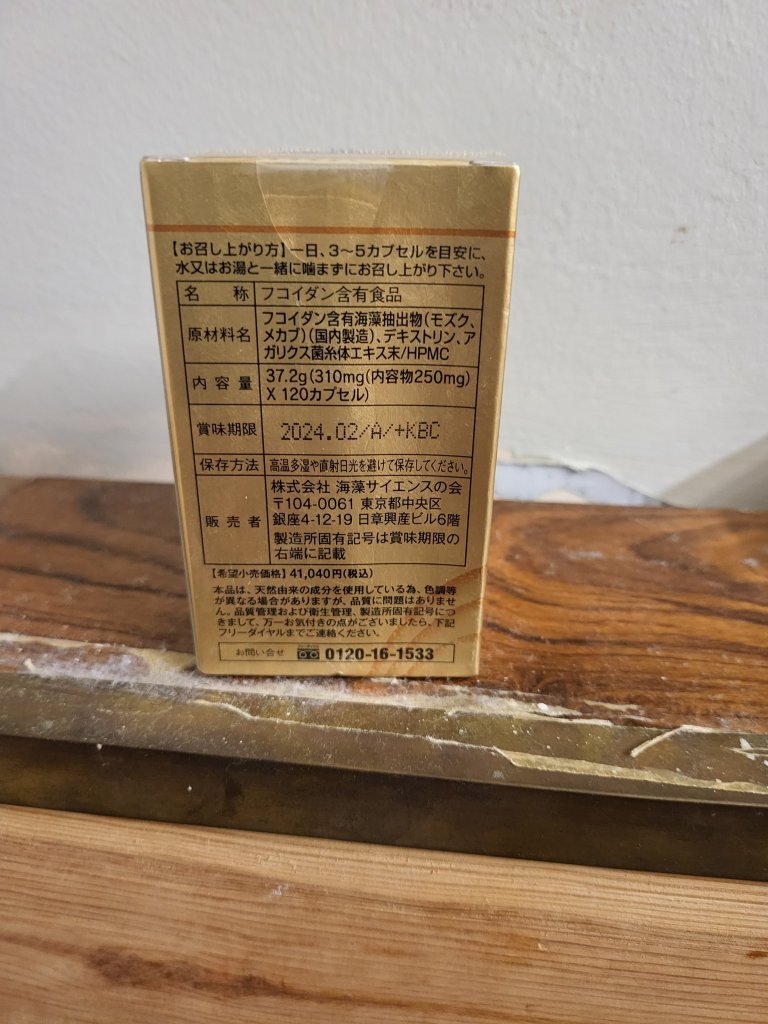 【お召し上がり方】一日、3〜5カプセルを目安に、
水又はお湯と一緒に噛まずにお召し上がり下さい。
名称 フコイダン含有食品
原材料名 フコイダン含有海藻抽出物(モズク、
メカブ)(国内製造)、デキストリン、ア
ガリクス菌糸体エキス末/HPMC
内容量 37.2g(310mg(内容物250mg)
X 120カプセル)
賞味期限 2024.02/A/+KBC
保存方法 高温多湿や直射日光を避けて保存してください。
販売者 株式会社 海藻サイエンスの会
〒104-0061 東京都中央区
銀座4-12-19 日章興産ビル6階
製造所固有記号は賞味期限の
右端に記載
【希望小売価格】41,040円(税込)
本品は、天然由来の成分を使用している為、色調等
が異なる場合がありますが、品質に問題はありませ
ん。品質管理および衛生管理、製造所固有記号につ
きまして、万一お気付きの点がございましたら、下記
フリーダイヤルまでご連絡ください。
お問い合せ 0120-16-1533